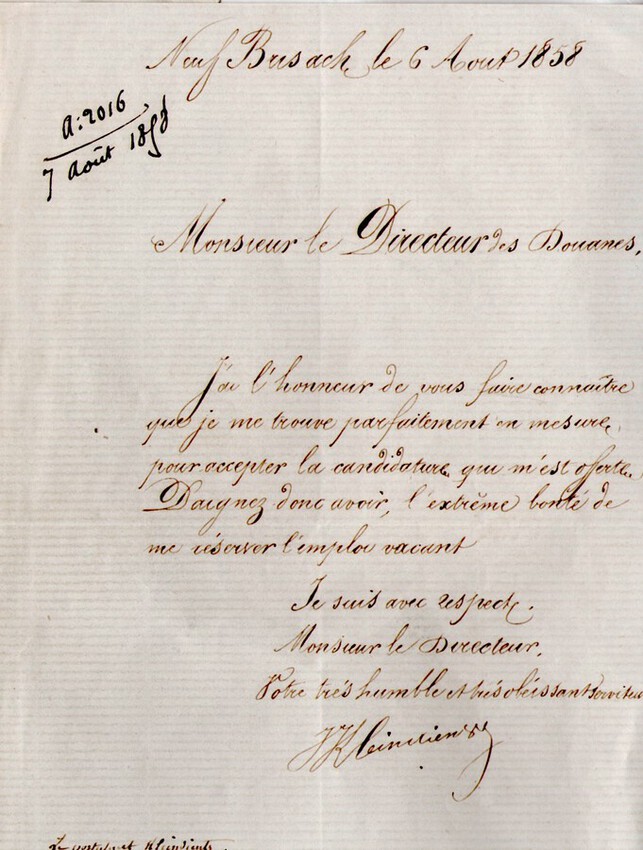 Neuf Brisach le 6 Aout 1858
A: 2016
7 Août 1858
Monsieur le Directeur des Douanes,
J'ai l'honneur de vous faire connaître
que je me trouve parfaitement en mesure
pour accepter la candidature qui m'est offerte,
Daignez donc avoir, l'extrême bonté de
me réserver l'emploi vacant
Je suis avec respect,
Monsieur le Directeur,
Votre trés humble et trés obéissant Serviteur